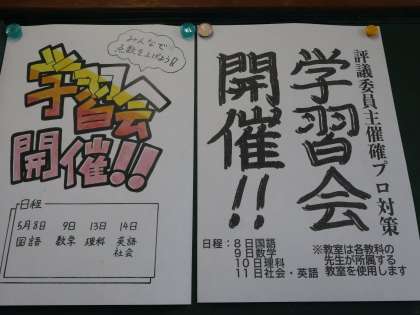 みんなで
点数を上げよう!
学習会へ
開催!!
日程
5月8日 9日 13日 14日
国語 数学 理科 英語
社会
評議委員主催確プロ対策
学習会
開催!!
日程:8日国語
9日数学
10日理科
11日社会・英語
※教室は各教科の
先生が所属する
教室を使用します